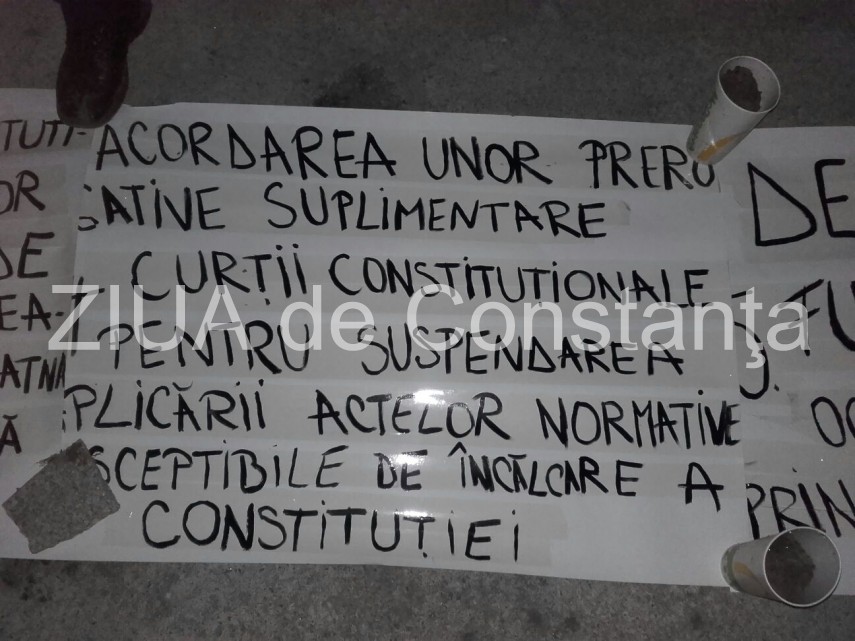 ACORDAREA UNOR PRERO
GATIVE SUPLIMENTARE
CURȚII CONSTITUȚIONALE
PENTRU SUSPENDAREA
APLICĂRII ACTELOR NORMATIVE
SCEPTIBILE DE ÎNCĂLCARE A
CONSTITUȚIEI
TUTI-
OR
DE
EA-
ATNA
Ă
DE
J. FU
OC
PRIN
ZIUA de Constanța